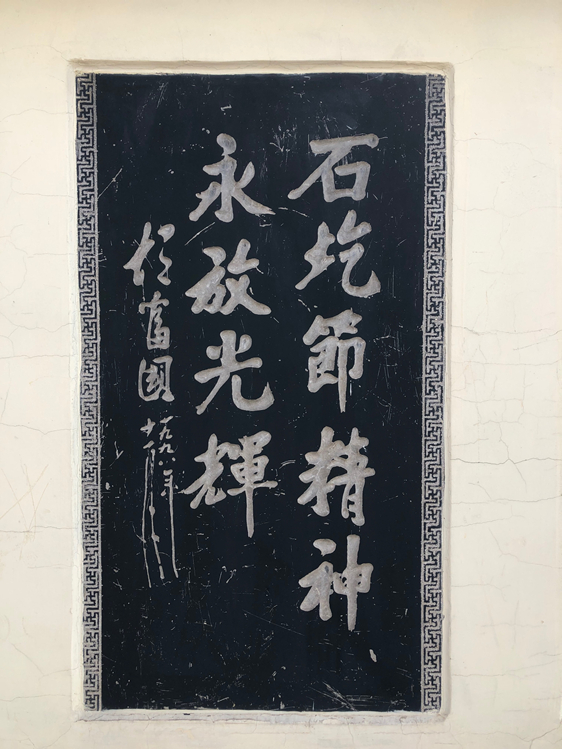 石圪節精神
永放光輝
富國
一九九八年
十月